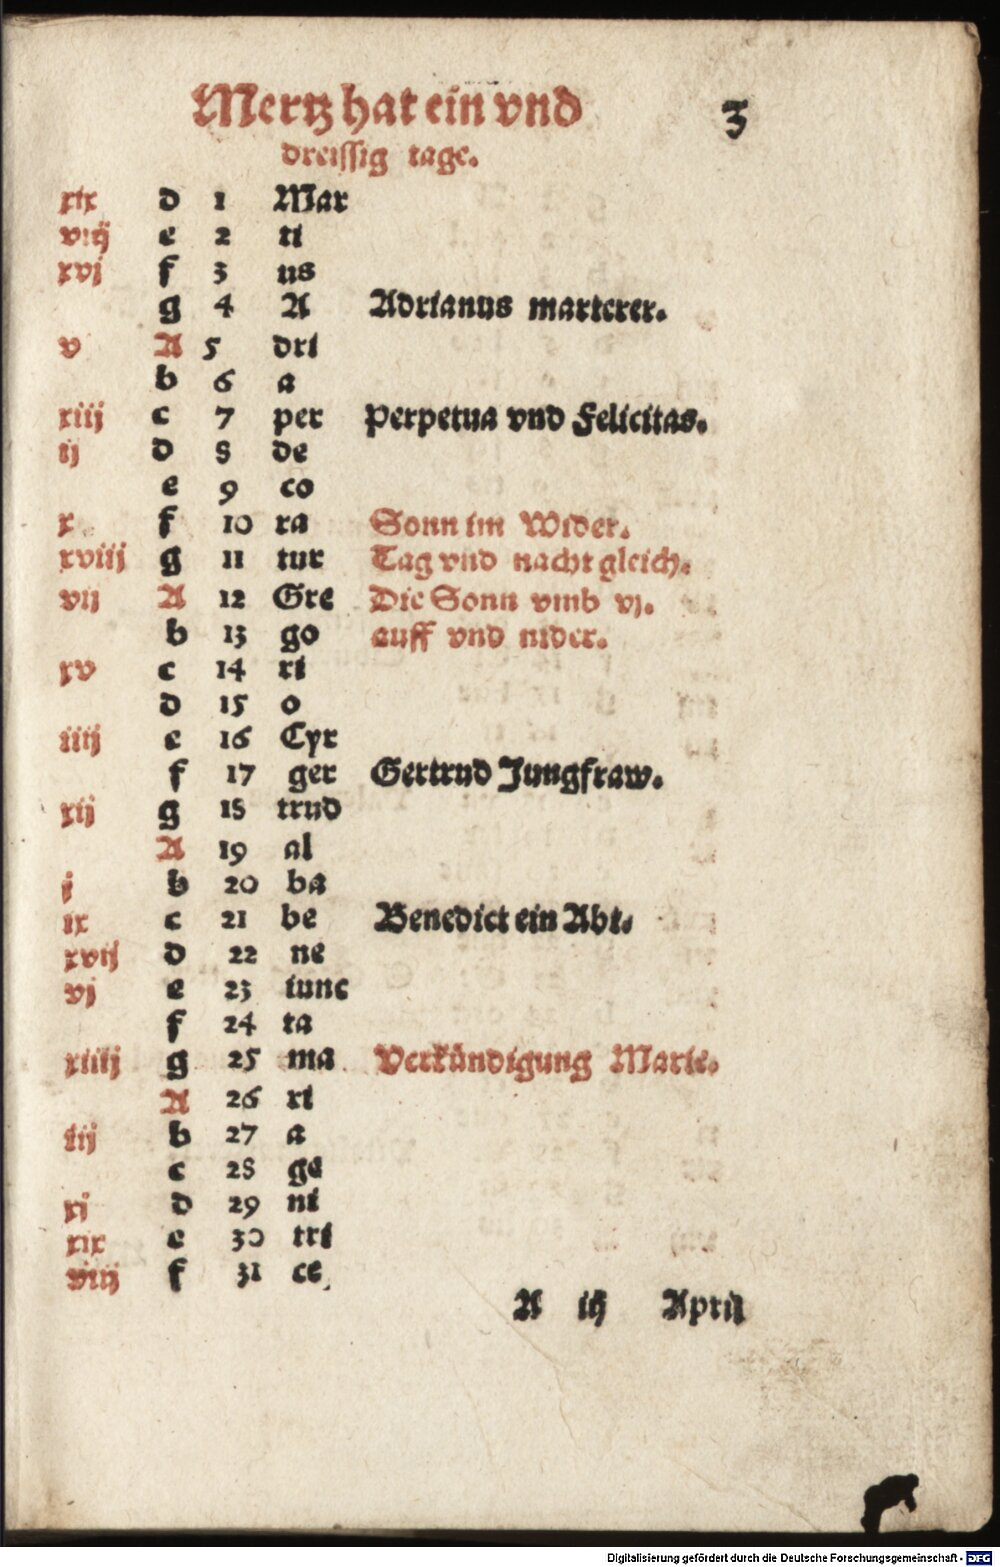 Mertz hat ein vnd 3
dreissig tage.
xix d 1 Mar
viij e 2 ti
xvj f 3 us
g 4 A Adrianus marterer.
v A 5 dri
b 6 a
xiij c 7 per Perpetua vnd Felicitas.
ij d 8 de
e 9 co
x f 10 ra Sonn im Wider.
xviij g 11 tur Tag vnd nacht gleich.
vij A 12 Gre Die Sonn vmb vj.
b 13 go auff vnd nider.
xv c 14 ri
d 15 o
iiij e 16 Cyr
f 17 ger Gertrud Jungfraw.
xij g 18 trud
A 19 al
j b 20 ba
ix c 21 be Benedict ein Abt.
xvij d 22 ne
vj e 23 iunc
f 24 ta
xiiij g 25 ma Verkündigung Marie.
A 26 ri
iij b 27 a
c 28 ge
xj d 29 ni
xix e 30 tri
viij f 31 ce
A iij April
Digitalisierung gefördert durch die Deutsche Forschungsgemeinschaft - DFG